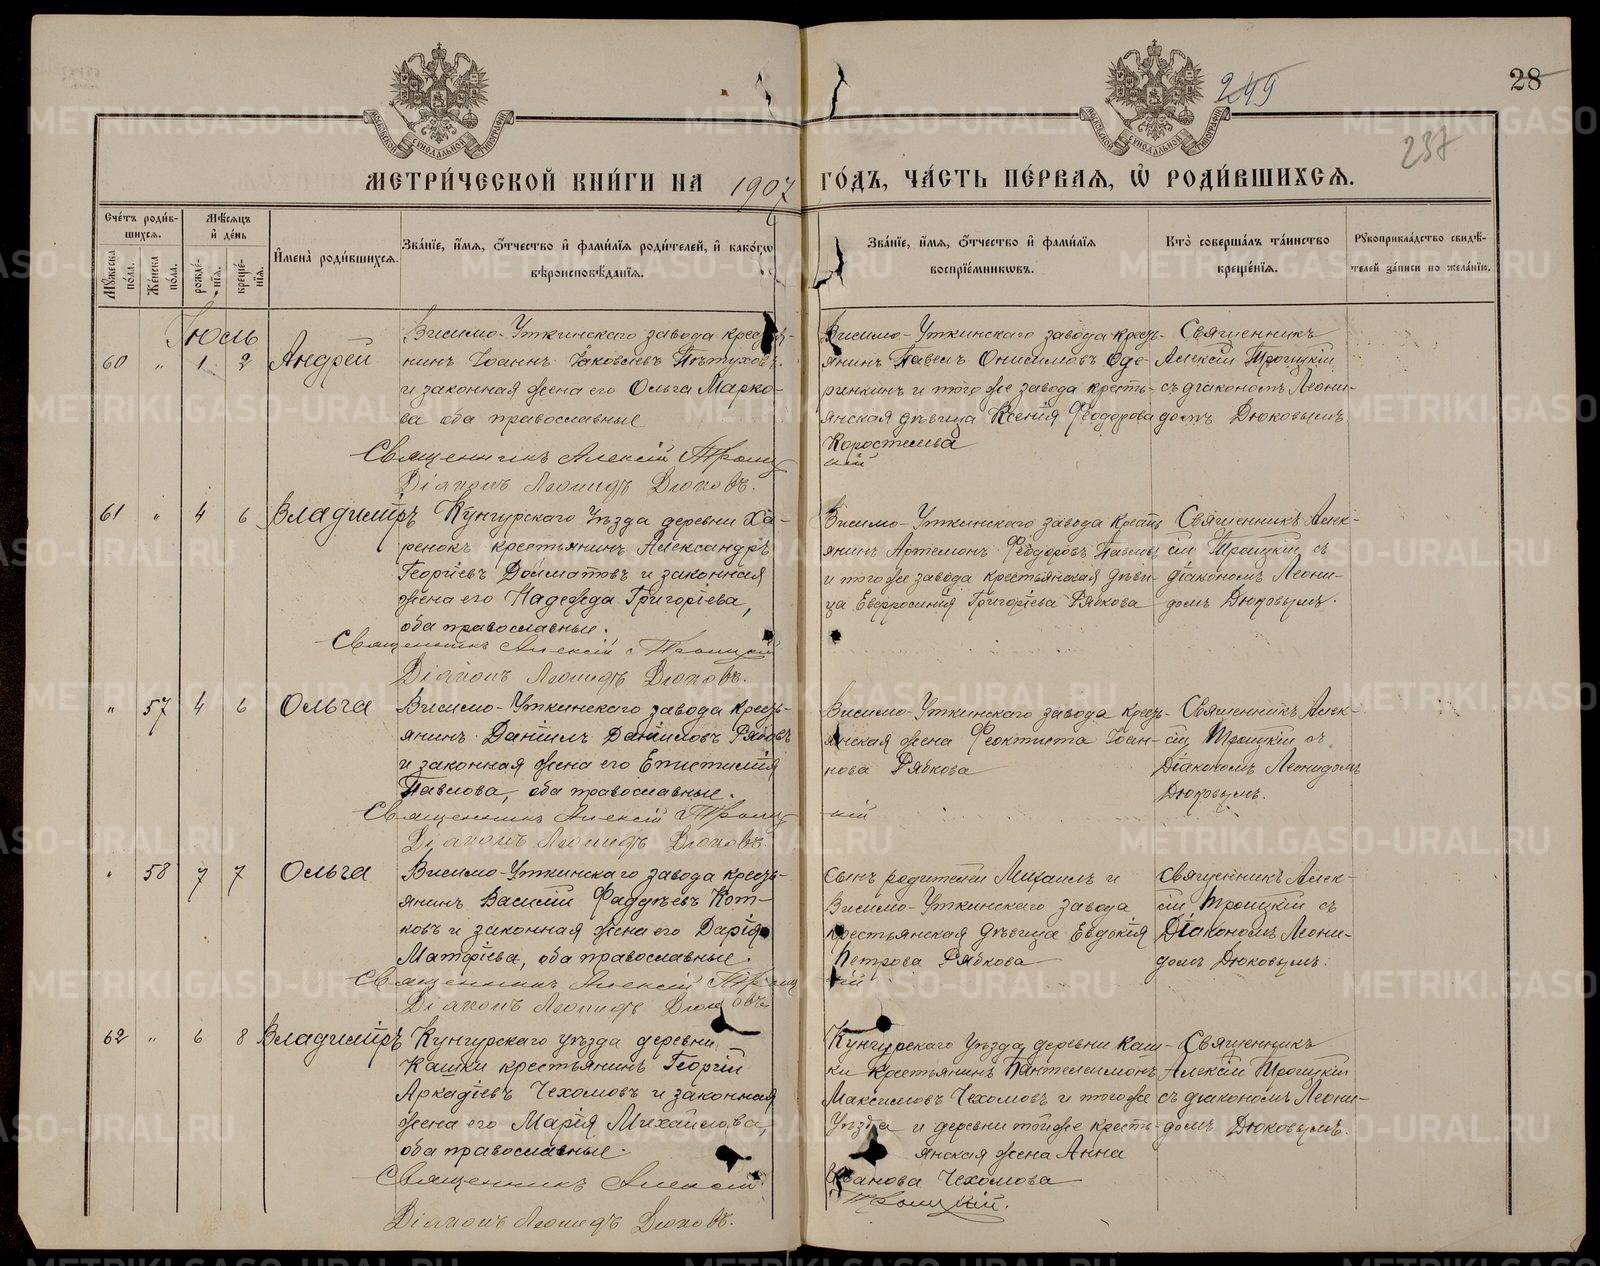 249
28
237
МЕТРИ́ЧЕСКОЙ КНИ́ГИ НА 1907 ГО́ДЪ, ЧА́СТЬ ПЕ́РВАЯ, Ѡ҆ РОДИ́ВШИХСѦ.
Сче́тъ роди́в-
шихсѧ.
Мꙋ́жеска по́ла.
Же́нска по́ла.
Мѣ́сѧцъ
и҆ де́нь
рожде́-
нїѧ.
креще́-
нїѧ.
И҆мена̀ роди́вшихсѧ.
Зва́нїе, и҆́мѧ, ѻ҆́тчество и҆ фами́лїѧ роди́телей, и҆ како́гѡ
вѣроисповѣ́данїѧ.
Зва́нїе, и҆́мѧ, ѻ҆́тчество и҆ фами́лїѧ
воспрїе́мниковъ.
Кто̀ соверша́лъ та́инство
креще́нїѧ.
Рꙋкоприкла́дство свидѣ́-
телей за́писи по жела́нїю.
Іюль
60 „ 1 2 Андрей
Висимо-Уткинскаго завода кресть-
нинъ Іоаннъ Іаковлевъ Пѣтуховъ
и законная жена его Ольга Марко-
ва оба православные
Священникъ Алексій Троиц
Діаконъ Леонидъ Дюковъ.
Висимо-Уткинскаго завода кресть-
янинъ Павелъ Онисимовъ Оде-
ринкинъ и того же завода кресть-
янская дѣвица Ксенія Ѳеодорова
Коростелева
кій
Священникъ
Алексій Троицкій
съ діакономъ Леони-
домъ Дюковымъ
61 „ 4 6 Владиміръ
Кунгурскаго уѣзда деревни Ха-
ренокъ крестьянинъ Александръ
Георгіевъ Долматовъ и законная
жена его Надежда Григоріева,
оба православные.
Священникъ Алексій Троицкій
Діаконъ Леонидъ Дюковъ.
Висимо-Уткинскаго завода кресть
янинъ Артемонъ Ѳеодоровъ Павловъ
и того же завода крестьянская дѣви-
ца Евфросинія Григоріева Рябкова
Священникъ Алек-
сій Троицкій съ
діакономъ Леони-
домъ Дюковымъ.
„ 57 4 6 Ольга
Висимо-Уткинскаго завода кресть-
янинъ Даніилъ Даниловъ Рябовъ
и законная жена его Епистимія
Павлова, оба православные.
Священникъ Алексій Троиц
Діаконъ Леонидъ Дюковъ.
Висимо-Уткинскаго завода кресть-
янская жена Ѳеоктиста Іоан-
нова Рябкова
кій
Священникъ Алек-
сій Троицкій съ
Діакономъ Леонидомъ
Дюковымъ.
„ 58 7 7 Ольга
Висимо-Уткинскаго завода кресть-
янинъ Василій Ѳаддѣевъ Кот-
ковъ и законная жена его Дарія
Матфіева, оба православные.
Священникъ Алексій Троиц
Діаконъ Леонидъ Дюковъ
Сынъ родителей Михаилъ и
Висимо-Уткинскаго завода
крестьянская дѣвица Евдокія
Петрова Рябкова
кій
Священникъ Алек-
сій Троицкій съ
Діакономъ Леони-
домъ Дюковымъ.
62 „ 6 8 Владиміръ
Кунгурскаго уѣзда деревни
Кашки крестьянинъ Георгій
Аркадіевъ Чехомовъ и законная
жена его Марія Михаилова,
оба православные.
Священникъ Алексій
Діаконъ Леонидъ Дюковъ.
Кунгурскаго уѣзда деревни Каш-
ки крестьянинъ Пантелеимонъ
Максимовъ Чехомовъ и того же
уѣзда и деревни той же кресть-
янская жена Анна
Иванова Чехомова
Троицкій.
Священникъ
Алексій Троицкій
съ діакономъ Леони-
домъ Дюковымъ.